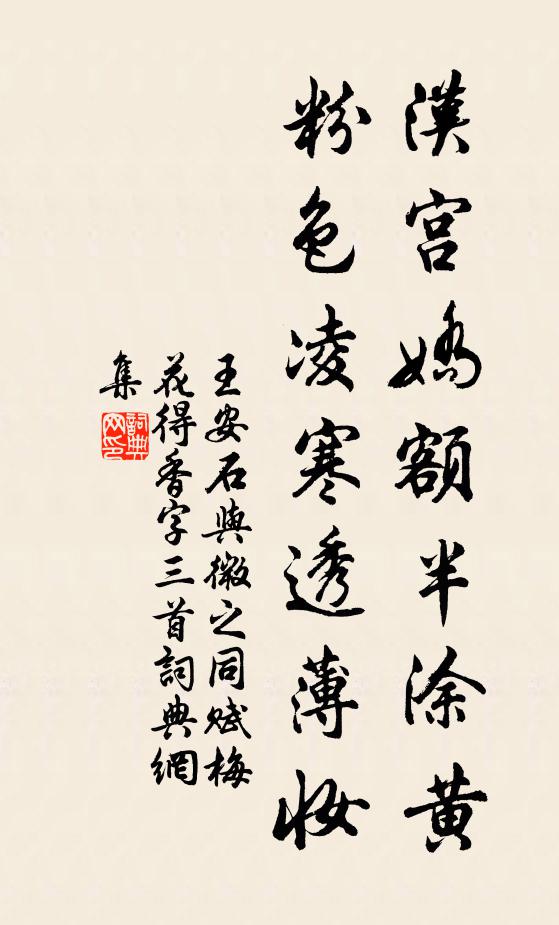 漢宮嬌額半涂黃
粉色凌寒透薄妝
王安石與微之同賦梅
花得香字三首詞典網
集
詞典
网印